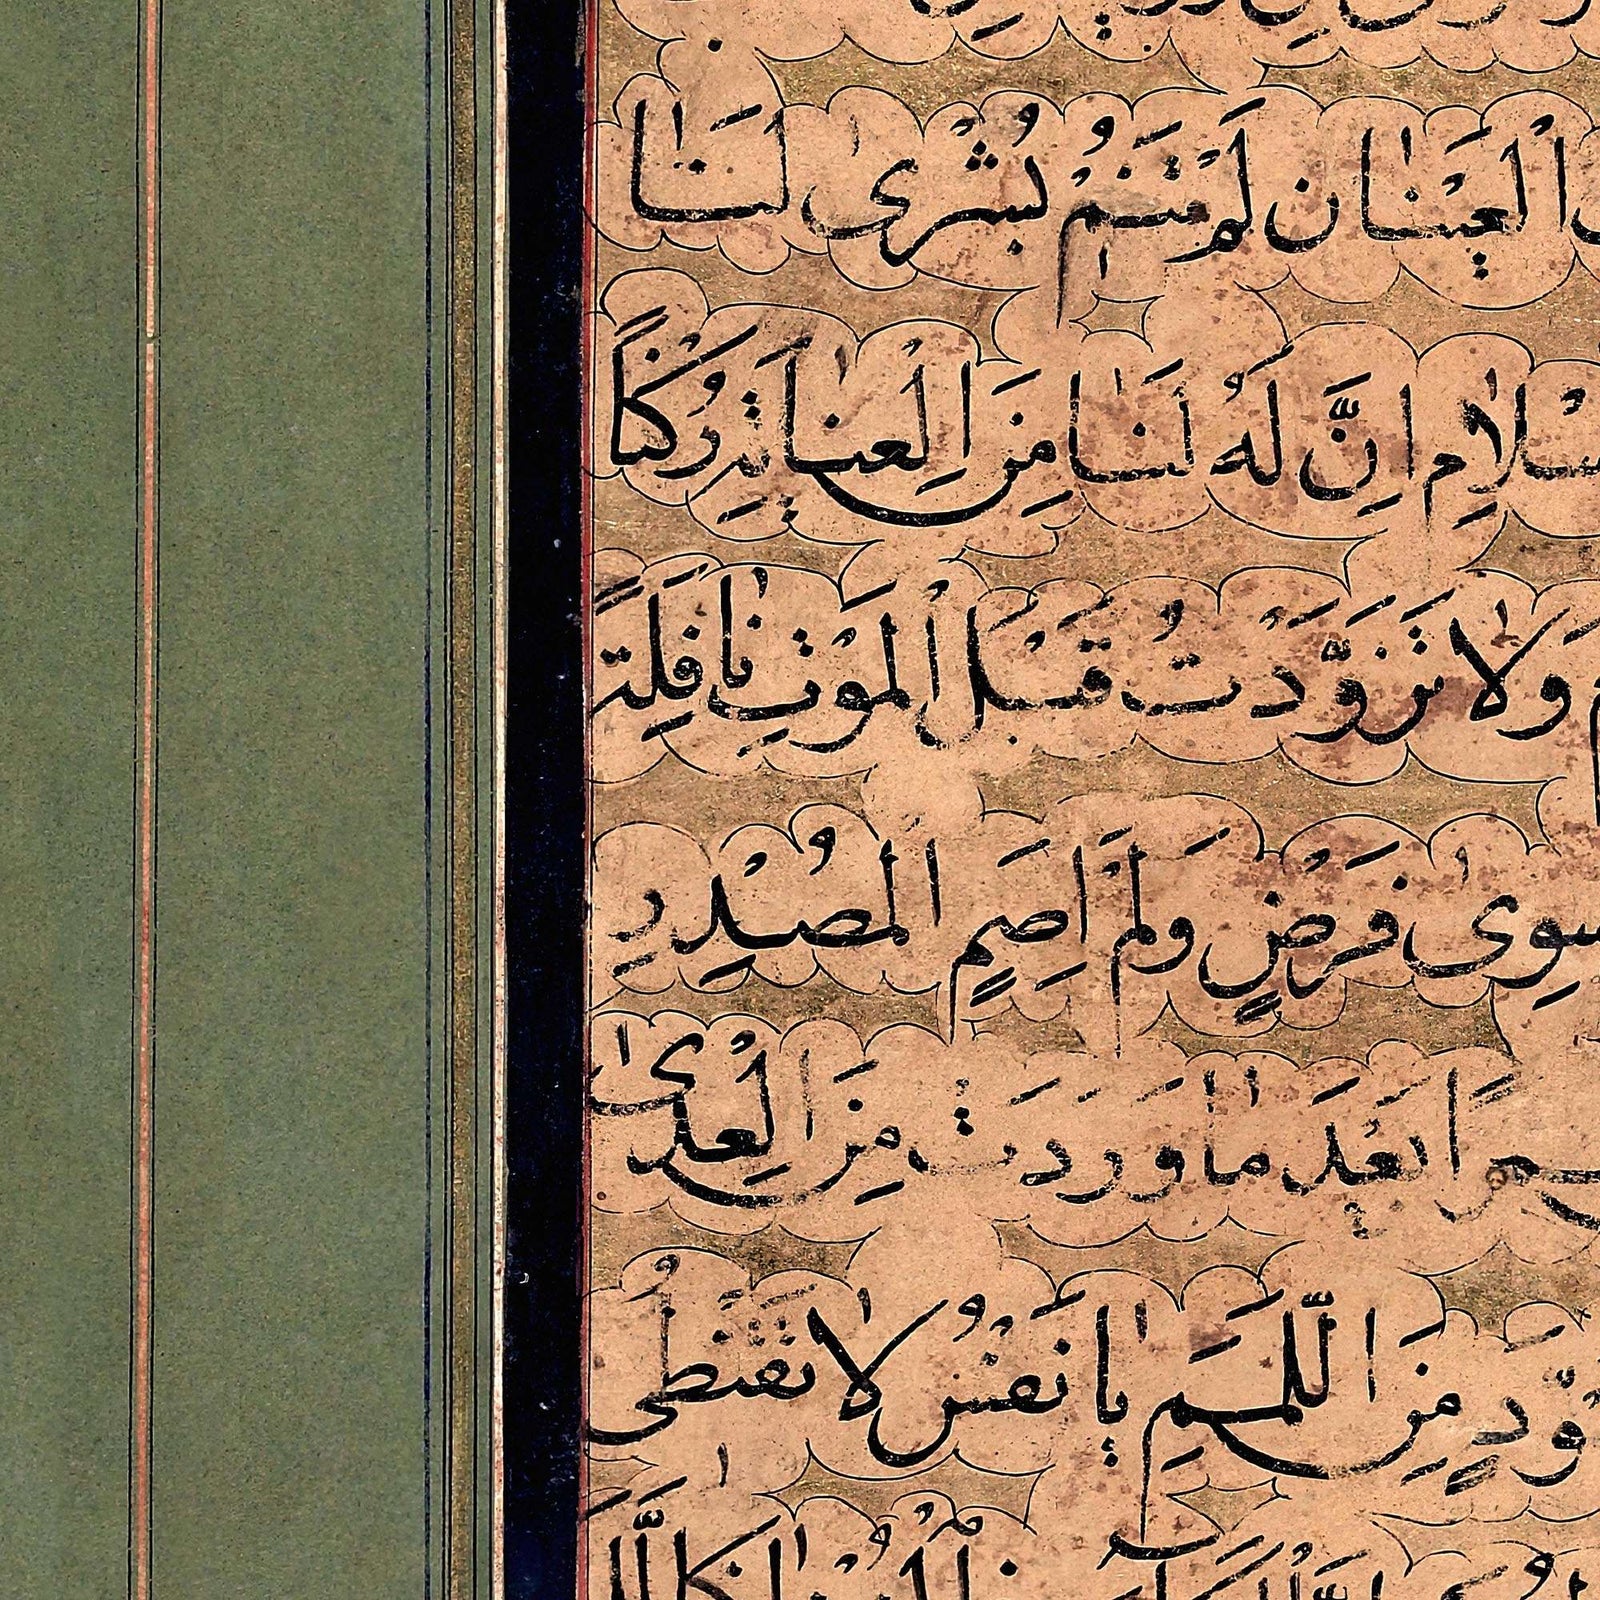 الْعَيْنَانِ لَمْ تَنَمِ بُشْرٰى لَنَا
سْلَامِ اِنَّ لَهُ لَنَا مِنَ الْعِنَايَةِ رُكْنًا
وَلَا تَزَوَّدْتُ قَبْلَ الْمَوْتِ نَافِلَةً
سِوٰى فَرْضٍ وَلَمْ اَصُمِ الْمُصْدِرِ
ـمرًا بَعْدَ مَا وَرَدَتْ مِنَ الْعِدٰى
ـوَدٍّ مِنَ اللَّمَمِ يَا نَفْسُ لَا تَقْنَطِى